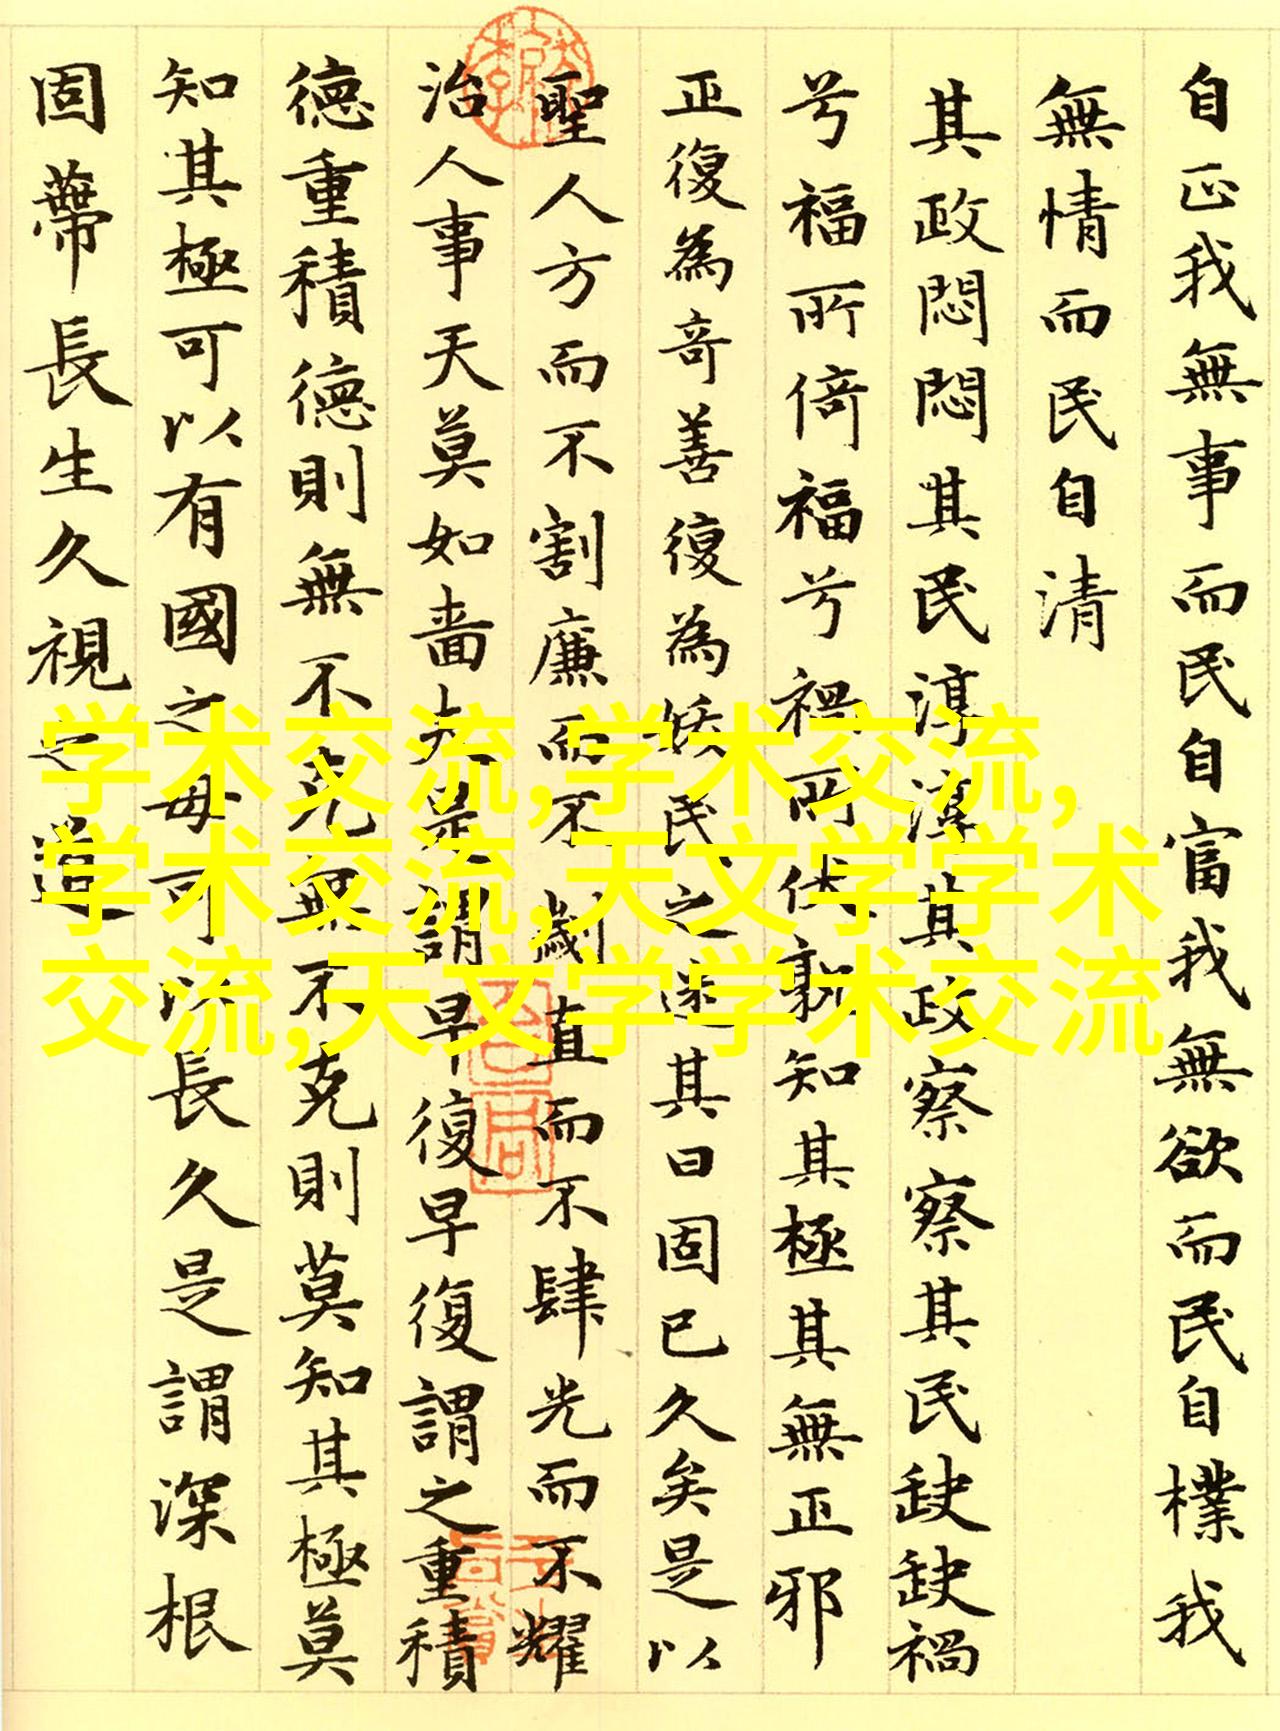 自正我無事而民自富我無欲而民自樸我
無情而民自清
其政悶悶其民淳淳其政察察其民缺缺禍
兮福所倚福兮禍所伏孰知其極其無正邪
正復為奇善復為妖民之迷其日固已久矣是以
聖人方而不割廉而不劌直而不肆光而不耀
治人事天莫如嗇夫是謂早復早復謂之重積
德重積德則無不克無不克則莫知其極莫
知其極可以有國之母可以長久是謂深根
固蔕長生久視之道
学术交流,学术交流,
学术交流,天文学学术
交流,天文学学术交流